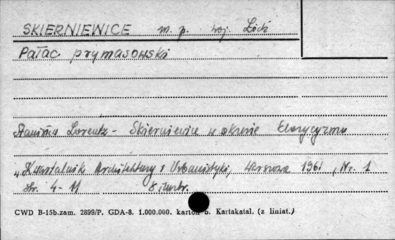 SKIERNIEWICE m. p. woj. Łódź
Pałac prymasowski
Stanisław Lorentz - Skierniewice w okresie klasycyzmu
"Kwartalnik Architektury i Urbanistyki, Warszawa 1961, Nr. 1
str. 4-11 8 ilustr.
CWD B-15b.zam. 2899/P. GDA-8. 1.000.000. karton b. Kartakatal. (z liniat.)